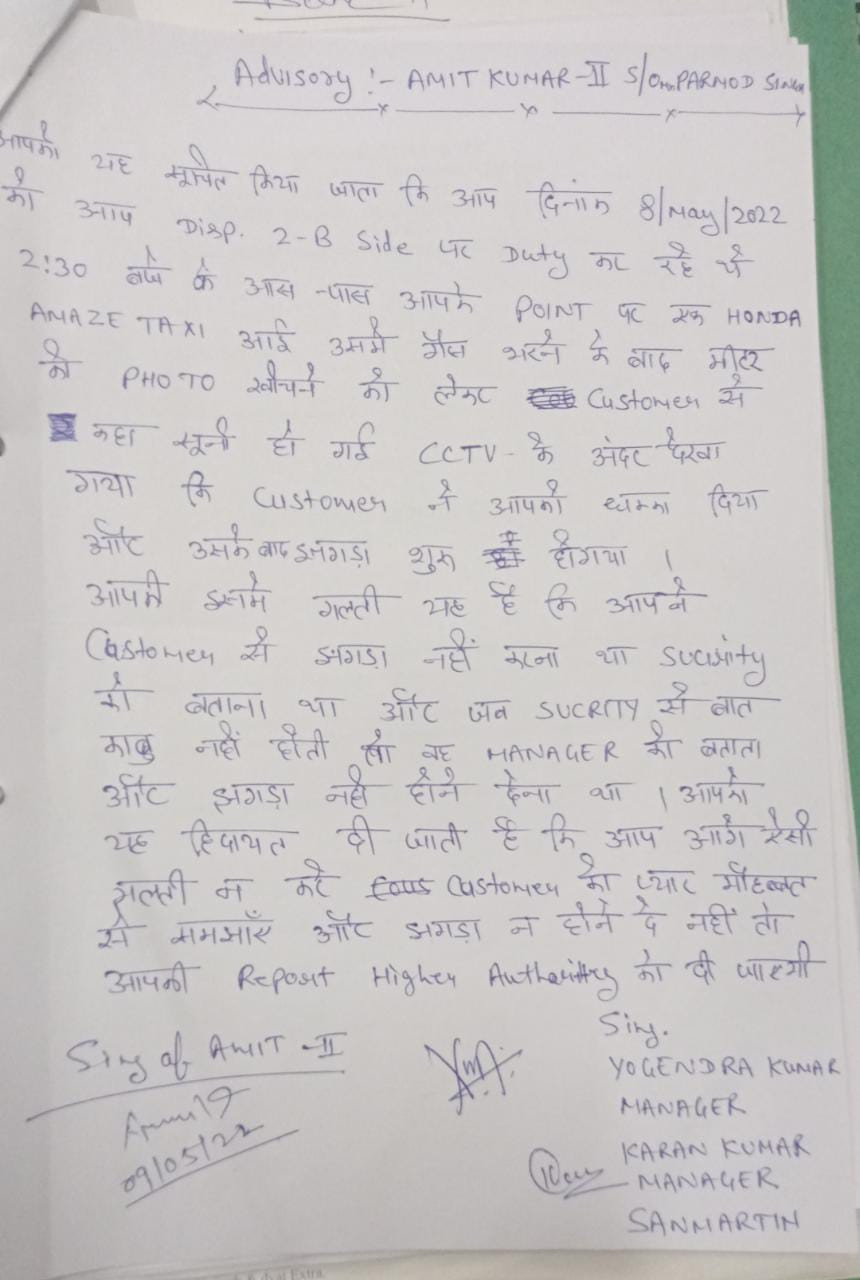 Advisory :- AMIT KUMAR-II S/O PARMOD SINGH
आपको यह सूचित किया जाता कि आप दिनांक 8/May/2022
को आप Disp. 2-B Side पर Duty कर रहे थे
2:30 बजे के आस-पास आपके POINT पर एक HONDA
AMAZE TAXI आई उसमे गैस भरने के बाद मीटर
की PHOTO खीचने को लेकर Customer से
कहा सूनी हो गई CCTV के अंदर देखा
गया कि Customer ने आपको धक्का दिया
और उसके बाद झगड़ा शुरू होगया ।
आपकी इसमे गलती यह है कि आपने
Customer से झगड़ा नहीं करना था Sucurity
को बताना था और जब SUCRITY से बात
काबु नहीं होती तो वह MANAGER को बताता
और झगड़ा नही होने देना था । आपको
यह हिदायत दी जाती है कि आप आगे ऐसी
गलती न करे Customer को प्यार मौहब्बत
से समझाएँ और झगड़ा न होने दे नहीं तो
आपकी Report Higher Authority को दी जाएगी
Sing of AMIT-II
09/05/22
Sing.
YOGENDRA KUMAR
MANAGER
KARAN KUMAR
MANAGER
SANMARTIN